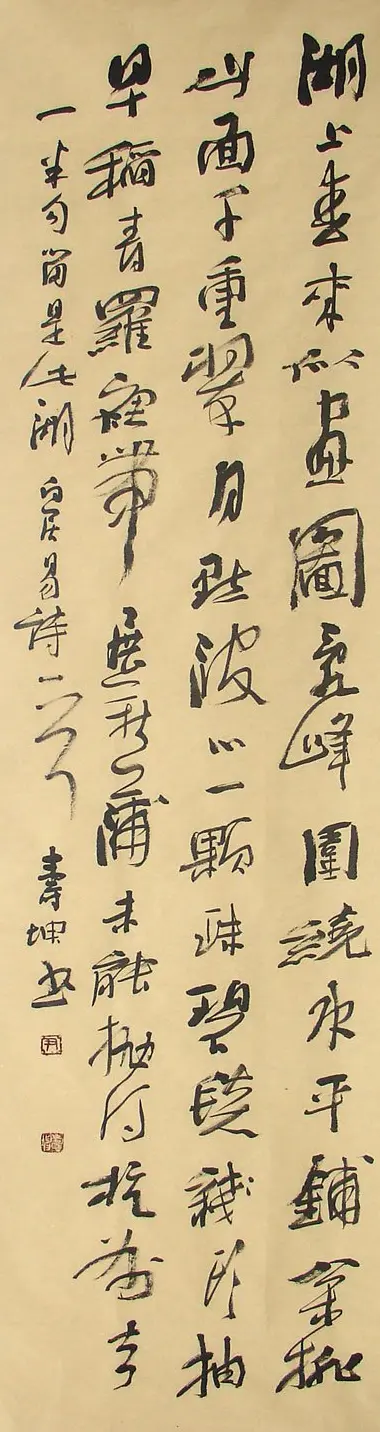 湖上春來似畫圖亂峰圍繞水平鋪松排
山面千重翠月點波心一顆珠碧毯綫頭抽
早稻青羅裙帶展新蒲未能拋得杭州去
一半勾留是此湖 白居易詩一首 壽坤書